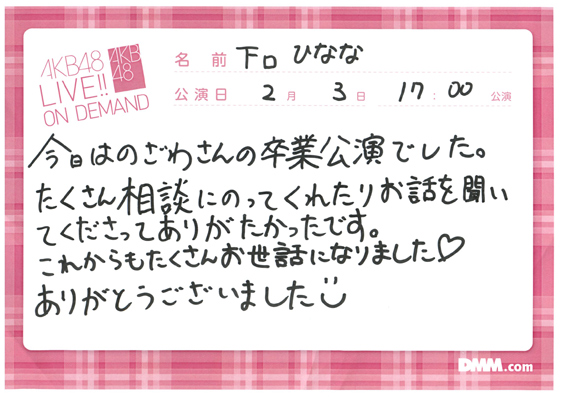 AKB48
LIVE!!
ON DEMAND
AKB
48
名前 下口 ひなな
公演日 2月 3日 17:00 公演
今日はのざわさんの卒業公演でした。
たくさん相談にのってくれたりお話を聞い
てくださってありがたかったです。
これからもたくさんお世話になりました♡
ありがとうございました
DMM.com